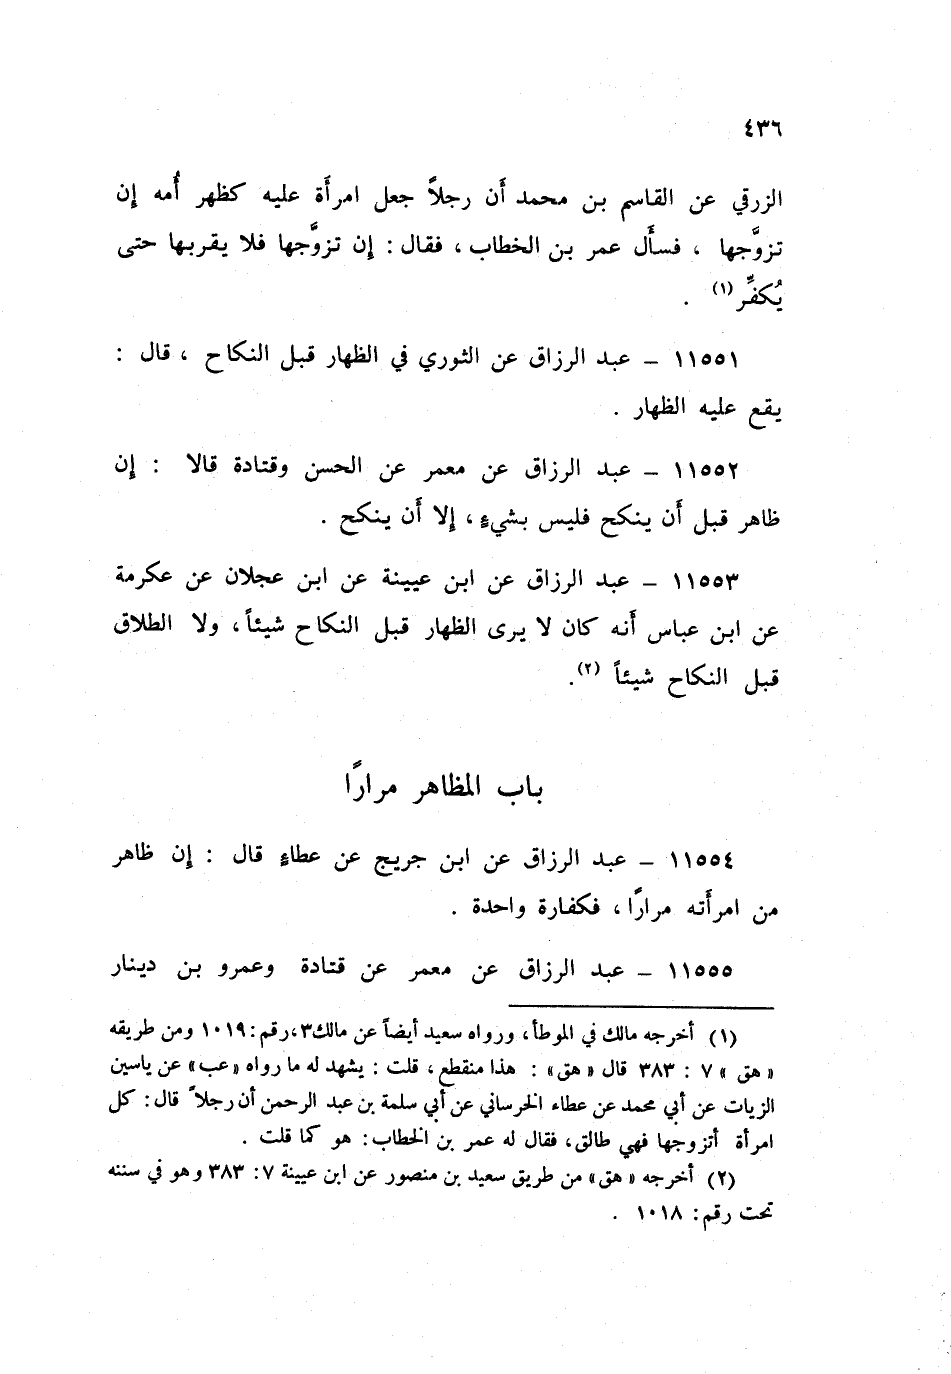 ٤٣٦
الزرقي عن القاسم بن محمد أن رجلاً جعل امرأة عليه كظهر أُمه إن
تزوَّجها ، فسأَل عمر بن الخطاب ، فقال : إن تزوَّجها فلا يقربها حتى
يُكفِّر (١) .
١١٥٥١ – عبد الرزاق عن الثوري في الظهار قبل النكاح ، قال :
يقع عليه الظهار .
١١٥٥٢ – عبد الرزاق عن معمر عن الحسن وقتادة قالا : إن
ظاهر قبل أَن ينكح فليس بشيءٍ ، إلا أَن ينكح .
١١٥٥٣ – عبد الرزاق عن ابن عيينة عن ابن عجلان عن عكرمة
عن ابن عباس أَنه كان لا يرى الظهار قبل النكاح شيئاً ، ولا الطلاق
قبل النكاح شيئاً (٢) .
باب المظاهر مرارًا
١١٥٥٤ – عبد الرزاق عن ابن جريج عن عطاءٍ قال : إن ظاهر
من امرأَته مرارًا ، فكفارة واحدة .
١١٥٥٥ – عبد الرزاق عن معمر عن قتادة وعمرو بن دينار
(١) أخرجه مالك في الموطأ ، ورواه سعيد أيضاً عن مالك ٣، رقم : ١٠١٩ ومن طريقه
« هق » ٧ : ٣٨٣ قال « هق » : هذا منقطع ، قلت : يشهد له ما رواه « عب » عن ياسين
الزيات عن أبي محمد عن عطاء الخرساني عن أبي سلمة بن عبد الرحمن أن رجلاً قال : كل
امرأة أتزوجها فهي طالق ، فقال له عمر بن الخطاب : هو كما قلت .
(٢) أخرجه « هق » من طريق سعيد بن منصور عن ابن عيينة ٧ : ٣٨٣ وهو في سننه
تحت رقم : ١٠١٨ .